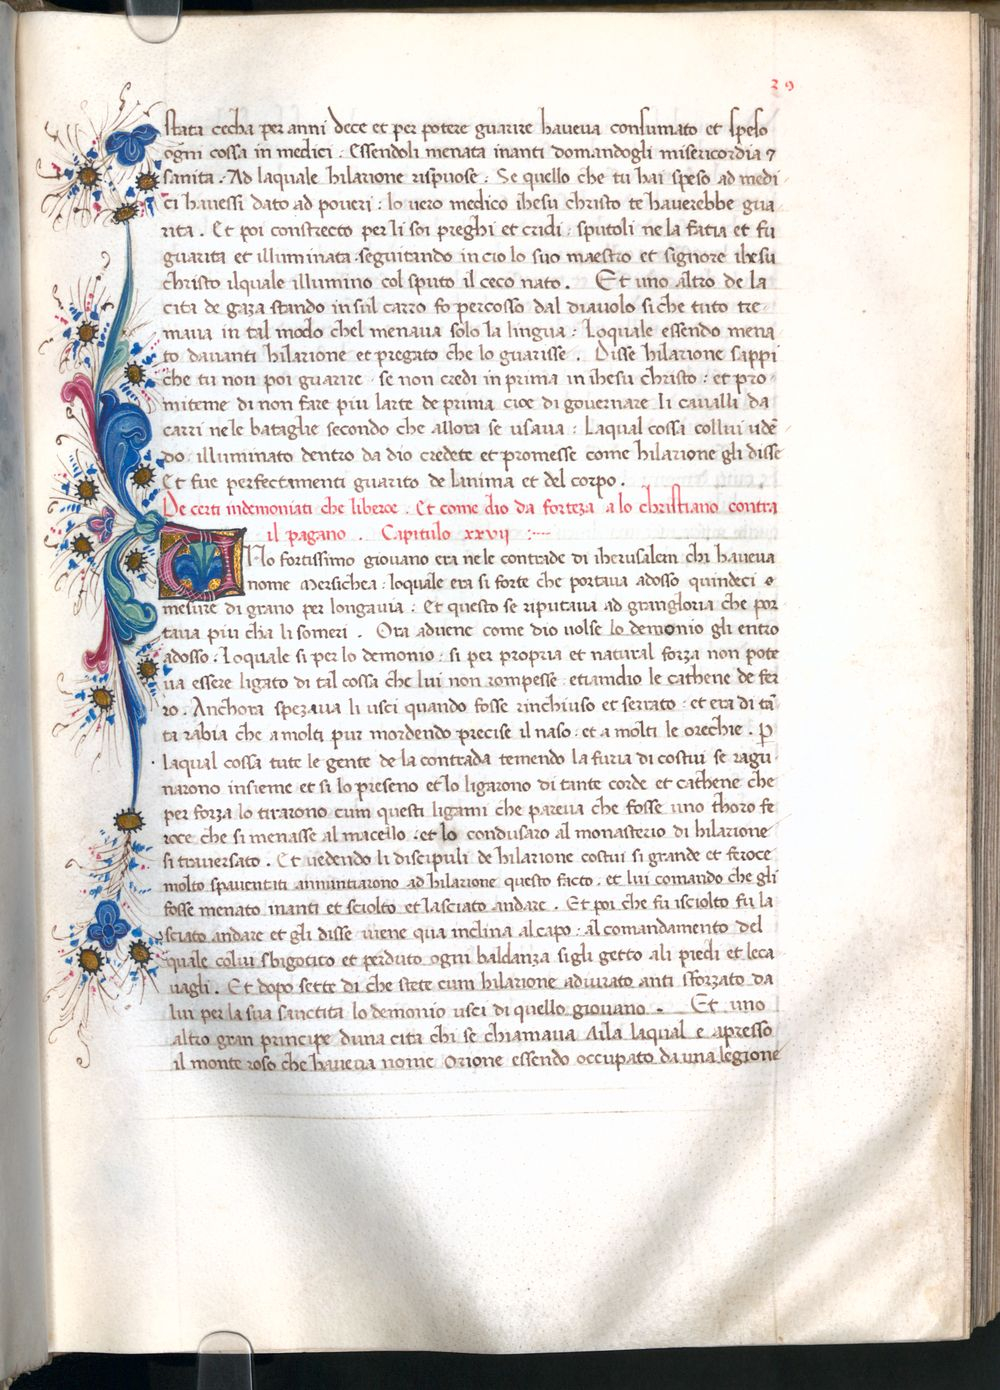 39
stata cecha per anni dece et per potere guarire haveva consumato et speso
ogni cossa in medici : Essendoli menata inanti domandogli misericordia ⁊
sanita . Ad laquale hilarione rispuose : Se quello che tu hai speso ad medi
ci havessi dato ad poveri : lo vero medico ihesu christo te haverebbe gua
rita . Et poi constrecto per li soi preghi et cridi : sputoli ne la facia et fu
guarita et illuminata seguitando in cio lo suo maestro et signore ihesu
christo ilquale illumino col sputo il ceco nato . Et uno altro de la
cita de gaza stando in sul carro fo percosso dal diavolo si che tuto tre
mava in tal modo chel menava solo la lingua : Loquale essendo mena
to davanti hilarione et pregato che lo guarisse . Disse hilarione sappi
che tu non poi guarire se non credi in prima in ihesu christo : et pro
miteme di non fare piu larte de prima cioe di governare li cavalli da
carri ne le bataglie secondo che allora se usava : Laqual cossa collui udē
do illuminato dentro da dio credete et promesse come hilarione gli disse
Et fue perfectamenti guarito de lanima et del corpo .
De certi indemoniati che liberoe . Et come dio da forteza a lo christiano contra
il pagano . Capitulo xxvij :~
Uno fortissimo giovano era ne le contrade di iherusalem chi haveva
nome Mersichea : loquale era si forte che portava adosso quindeci
mesure di grano per longavia : Et questo se riputava ad gran gloria che por
tava piu cha li someri . Ora advene come dio volse lo demonio gli entro
adosso : Loquale si per lo demonio : si per propria et natural forza non pote
va essere ligato di tal cossa che lui non rompesse etiamdio le cathene de fer
ro . Anchora spezava li usci quando fosse rinchiuso et serrato : et era di tā
ta rabia che a molti pur mordendo precise il naso : et a molti le orechie . ꝑ
laqual cossa tute le gente de la contrada temendo la furia di costui se ragu
narono insieme et si lo preseno et lo ligarono di tante corde et cathene che
per forza lo tirarono cum questi ligami che pareva che fosse uno thoro fe
roce che si menasse al macello : et lo condusaro al monasterio di hilarione
si traversato . Et vedendo li discipuli de hilarione costui si grande et feroce
molto spaventiti annuntiarono ad hilarione questo facto . et lui comando che gli
fosse menato inanti et sciolto et lasciato andare . Et poi che fu isciolto fu la
sciato andare et gli disse viene qua inclina al capo : al comandamento del
quale colui sbigotito et perduto ogni baldanza si gli getto a li piedi et leca
vagli . Et dopo sette di che stete cum hilarione adiurato anti sforzato da
lui per la sua sanctita lo demonio usci di quello giovano . Et uno
altro gran principe duna cita chi se chiamava Aila laqual e apresso
il monte roso che haveva nome Orione essendo occupato da una legione